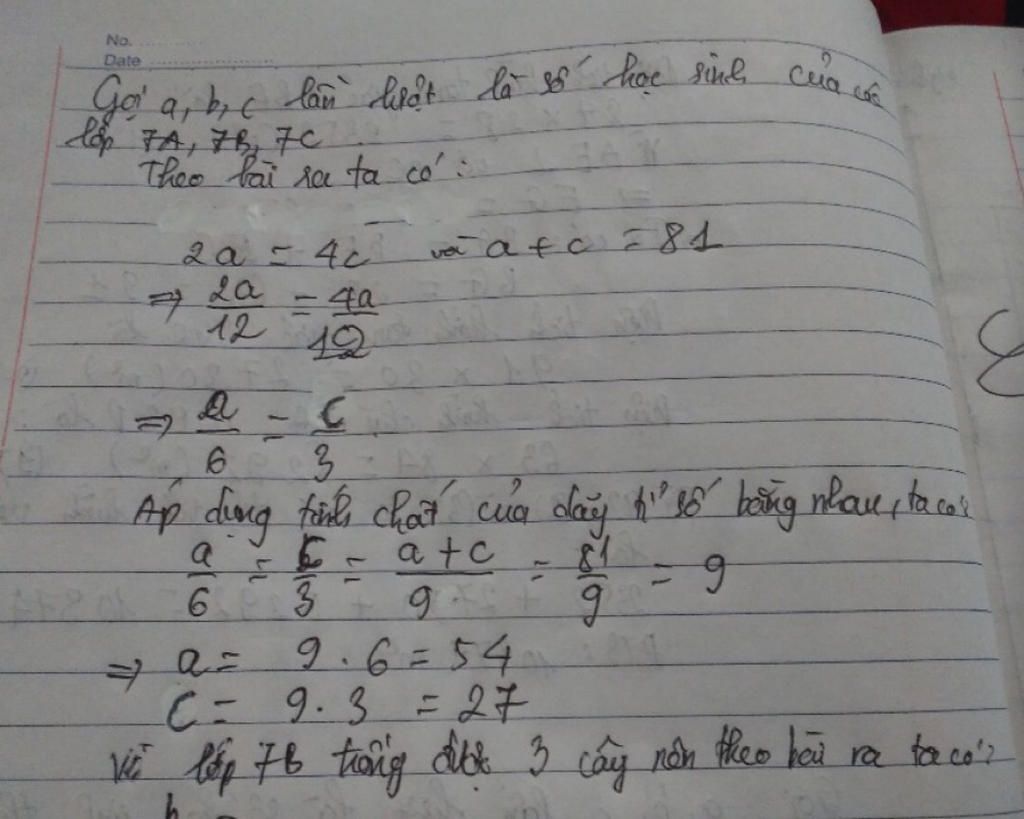 No.
Date
Gọi a, b, c lần lượt là số học sinh của các
lớp 7A, 7B, 7C
Theo bài ra ta có :
2a = 4c và a + c = 81
⇒ 2a/12 = 4a/12
⇒ a/6 = c/3
Áp dụng tính chất của dãy tỉ số bằng nhau, ta có:
a/6 = c/3 = a + c/9 = 81/9 = 9
⇒ a = 9 . 6 = 54
c = 9 . 3 = 27
Vì lớp 7B trồng được 3 cây nên theo bài ra ta có: